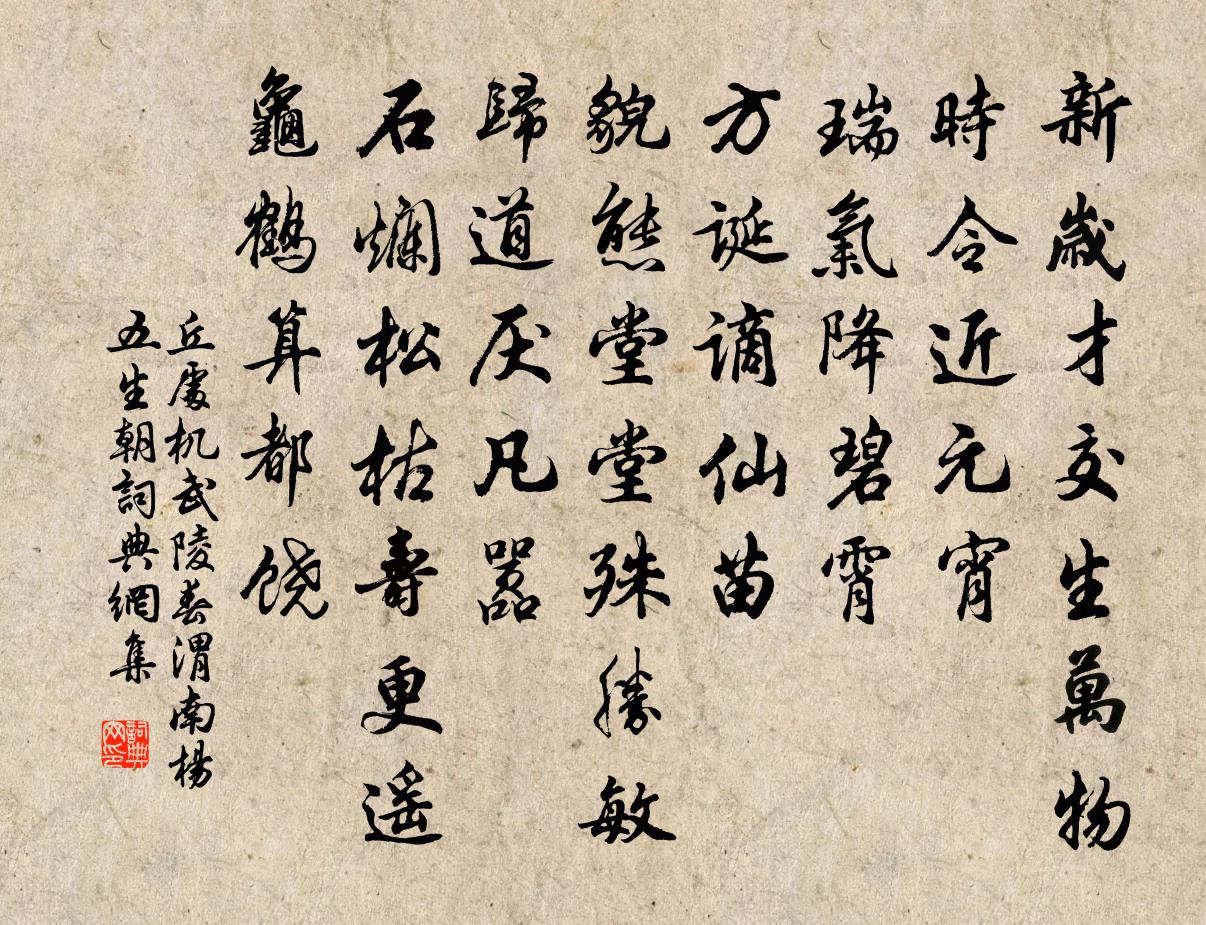 新歲才交生萬物
時令近元宵
瑞氣降碧霄
方誕謫仙苗
貌態堂堂殊勝敏
歸道厌凡嚣
石爛松枯壽更遥
龜鶴算都饶
丘處机武陵春渭南楊
五生朝詞典網集
詞典